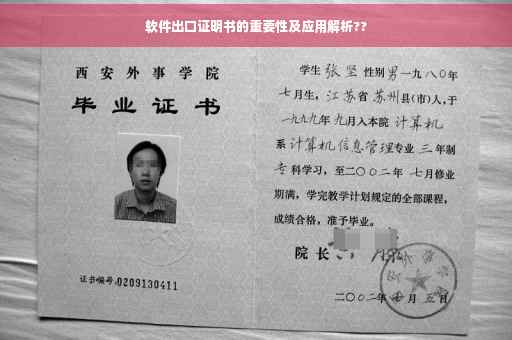 软件出口证明书的重要性及应用解析??
西安外事学院
毕业证书
证书编号:0209130411
学生 张坚 性别 男 一九八〇年
七月生, 江苏省 苏州县(市)人,于
一九九九年 九月入本院 计算机
系 计算机信息管理 专业 三 年制
专科学习, 至二〇〇二年 七月修业
期满, 学完教学计划规定的全部课程,
成绩合格, 准予毕业。
院长
二〇〇二年 七月 五日